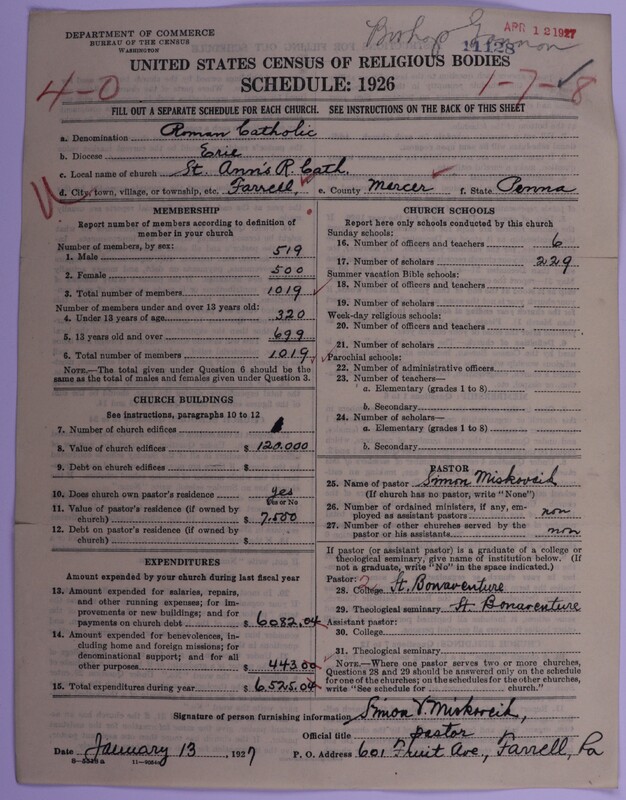 DEPARTMENT OF COMMERCE
BUREAU OF THE CENSUS
WASHINGTON
Bishop Gannon
APR 12 1927
11128
UNITED STATES CENSUS OF RELIGIOUS BODIES
SCHEDULE: 1926
4-0
1-7-8
FILL OUT A SEPARATE SCHEDULE FOR EACH CHURCH. SEE INSTRUCTIONS ON THE BACK OF THIS SHEET
a. Denomination Roman Catholic
b. Diocese Erie
c. Local name of church St. Ann's R. Cath.
d. City, town, village, or township, etc. Farrell, e. County Mercer f. State Penna
MEMBERSHIP
Report number of members according to definition of
member in your church
Number of members, by sex:
1. Male 519
2. Female 500
3. Total number of members 1019
Number of members under and over 13 years old:
4. Under 13 years of age 320
5. 13 years old and over 699
6. Total number of members 1019
NOTE.—The total given under Question 6 should be the
same as the total of males and females given under Question 3.
CHURCH BUILDINGS
See instructions, paragraphs 10 to 12
7. Number of church edifices 1
8. Value of church edifices $ 120.000
9. Debt on church edifices $
10. Does church own pastor's residence yes
Yes or No
11. Value of pastor's residence (if owned by
church) $ 7.500
12. Debt on pastor's residence (if owned by
church) $
EXPENDITURES
Amount expended by your church during last fiscal year
13. Amount expended for salaries, repairs,
and other running expenses; for im-
provements or new buildings; and for
payments on church debt $ 6082.04
14. Amount expended for benevolences, in-
cluding home and foreign missions; for
denominational support; and for all
other purposes $ 443.00
15. Total expenditures during year $ 6.525.04
CHURCH SCHOOLS
Report here only schools conducted by this church
Sunday schools:
16. Number of officers and teachers 6
17. Number of scholars 229
Summer vacation Bible schools:
18. Number of officers and teachers
19. Number of scholars
Week-day religious schools:
20. Number of officers and teachers
21. Number of scholars
Parochial schools:
22. Number of administrative officers
23. Number of teachers—
a. Elementary (grades 1 to 8)
b. Secondary
24. Number of scholars—
a. Elementary (grades 1 to 8)
b. Secondary
PASTOR
25. Name of pastor Simon Miskovcih
(If church has no pastor, write "None")
26. Number of ordained ministers, if any, em-
ployed as assistant pastors non
27. Number of other churches served by the
pastor or his assistants non
If pastor (or assistant pastor) is a graduate of a college or
theological seminary, give name of institution below. (If
not a graduate, write "No" in the space indicated.)
Pastor:
28. College St. Bonaventure
29. Theological seminary St. Bonaventure
Assistant pastor:
30. College
31. Theological seminary
NOTE.—Where one pastor serves two or more churches,
Questions 28 and 29 should be answered only on the schedule
for one of the churches; on the schedules for the other churches,
write "See schedule for church."
Signature of person furnishing information Simon V Miskovcih,
Official title pastor
Date January 13, 1927 P. O. Address 601 Fruit Ave., Farrell, Pa